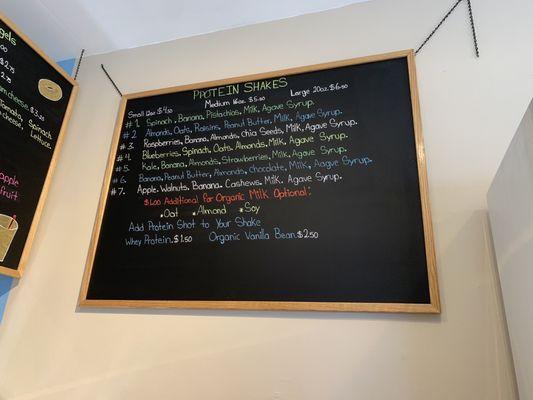 PROTEIN SHAKES
Small 12oz $4.50 Medium 16oz $5.00 Large 20oz $6.00
#1. Spinach, Banana, Pistachios, Milk, Agave Syrup.
#2. Almonds, Oats, Raisins, Peanut Butter, Milk, Agave Syrup.
#3. Raspberries, Banana, Almonds, Chia Seeds, Milk, Agave Syrup.
#4. Blueberries, Spinach, Oats, Almonds, Milk, Agave Syrup.
#5. Kale, Banana, Almonds, Strawberries, Milk, Agave Syrup.
#6. Banana, Peanut Butter, Almonds, Chocolate, Milk, Agave Syrup.
#7. Apple, Walnuts, Banana, Cashews, Milk, Agave Syrup.
$1.00 Additional for Organic Milk Optional:
*Oat *Almond *Soy
Add Protein Shot to Your Shake
Whey Protein. $1.50 Organic Vanilla Bean. $2.50
gels
$2.75
cheese $3.00
Tomato, Spinach
cheese, Lettuce
apple
fruit.